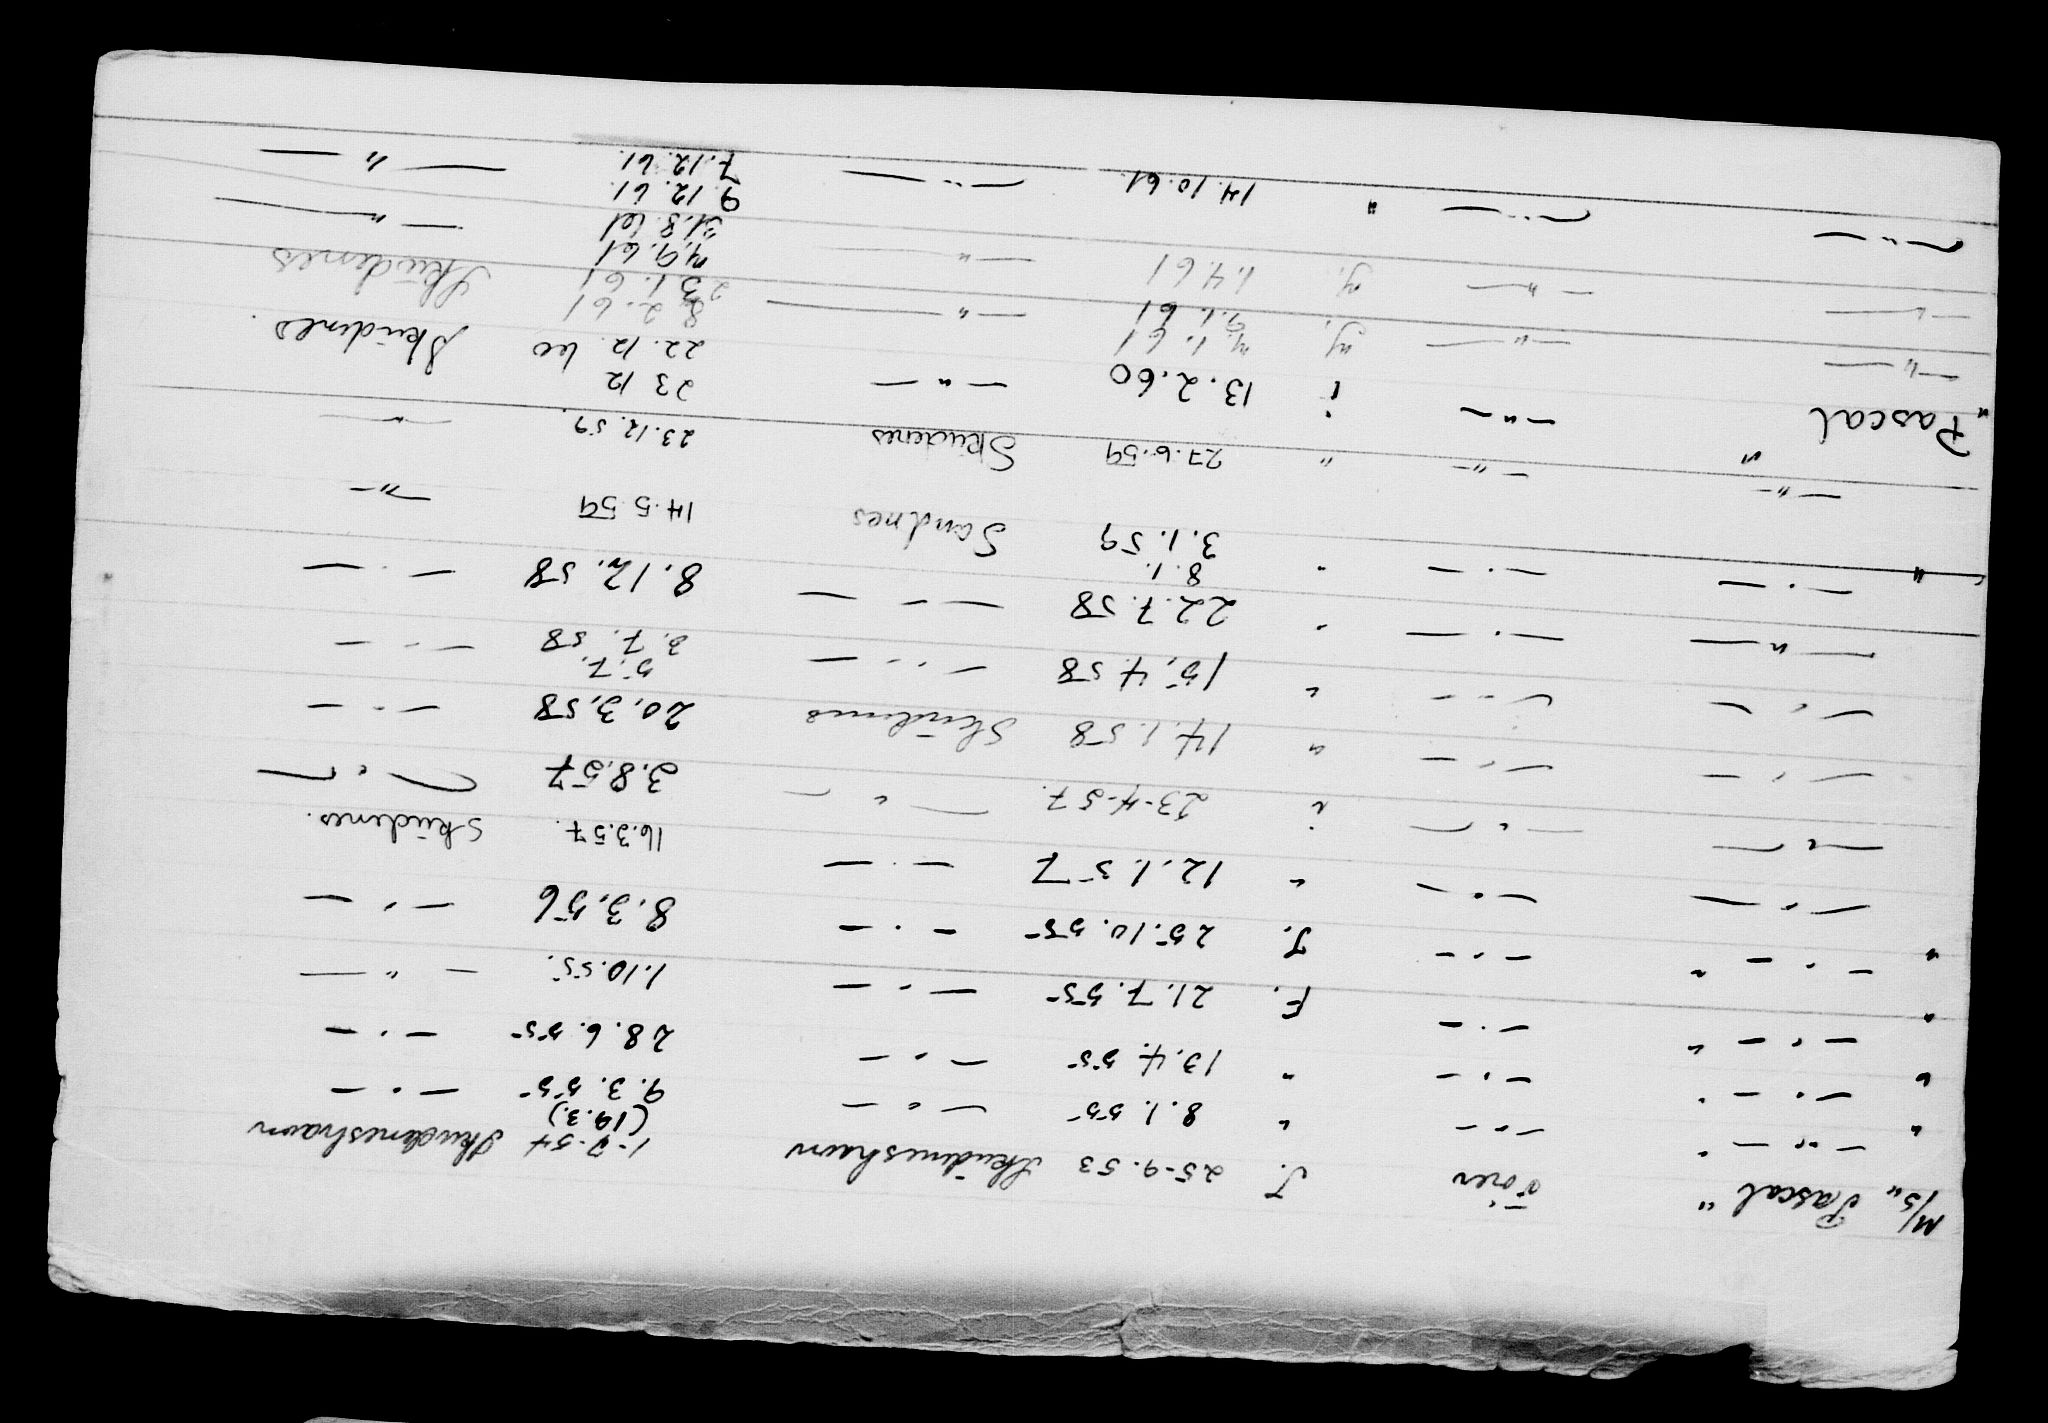 M/S "Pascal" Förer J. 25-9.53 Skudeneshavn 1-7-54 Skudeneshavn
" — " — " — " — " 8.1.55 — " — (19.3.) 9.3.55 — " —
" — " — " — " — " 13.4.55 — " — 28.6.55 — " —
" — " — " — " — F. 21.7.55 — " — 1.10.55. — " —
" — " — " — " — J. 25.10.55 — " — 8.3.56 — " —
— " — — " — " 12.1.57 — " — 16.3.57. Skudenes.
— " — — " — " 23-4-57. — " — 3.8.57 — " —
— " — — " — " 14.1.58 Skudenes 20.3.58 — " —
— " — — " — " 15.4.58 — " — 5.7. 3.7.58 — " —
— " — — " — " 22.7.58 — " — 8.12.58 — " —
" — " — — " — " 8.1. 3.1.59 Sandnes 14.5.59 — " —
— " — " — " — " 27.6.59 Skudenes 23.12.59. — " —
"Pascal" — " — i 13.2.60 — " — 23 12 22.12.60 Skudenes.
— " — — " — y. 4.1.61 9.1.61 — " — 8.2.61 23.1.61 Skudenes
— " — — " — y. 1.4.61 — " — 4.9.61 31.8.61 — " —
— " — — " — " 14.10.61. — " — 9.12.61. 7.12.61. — " —